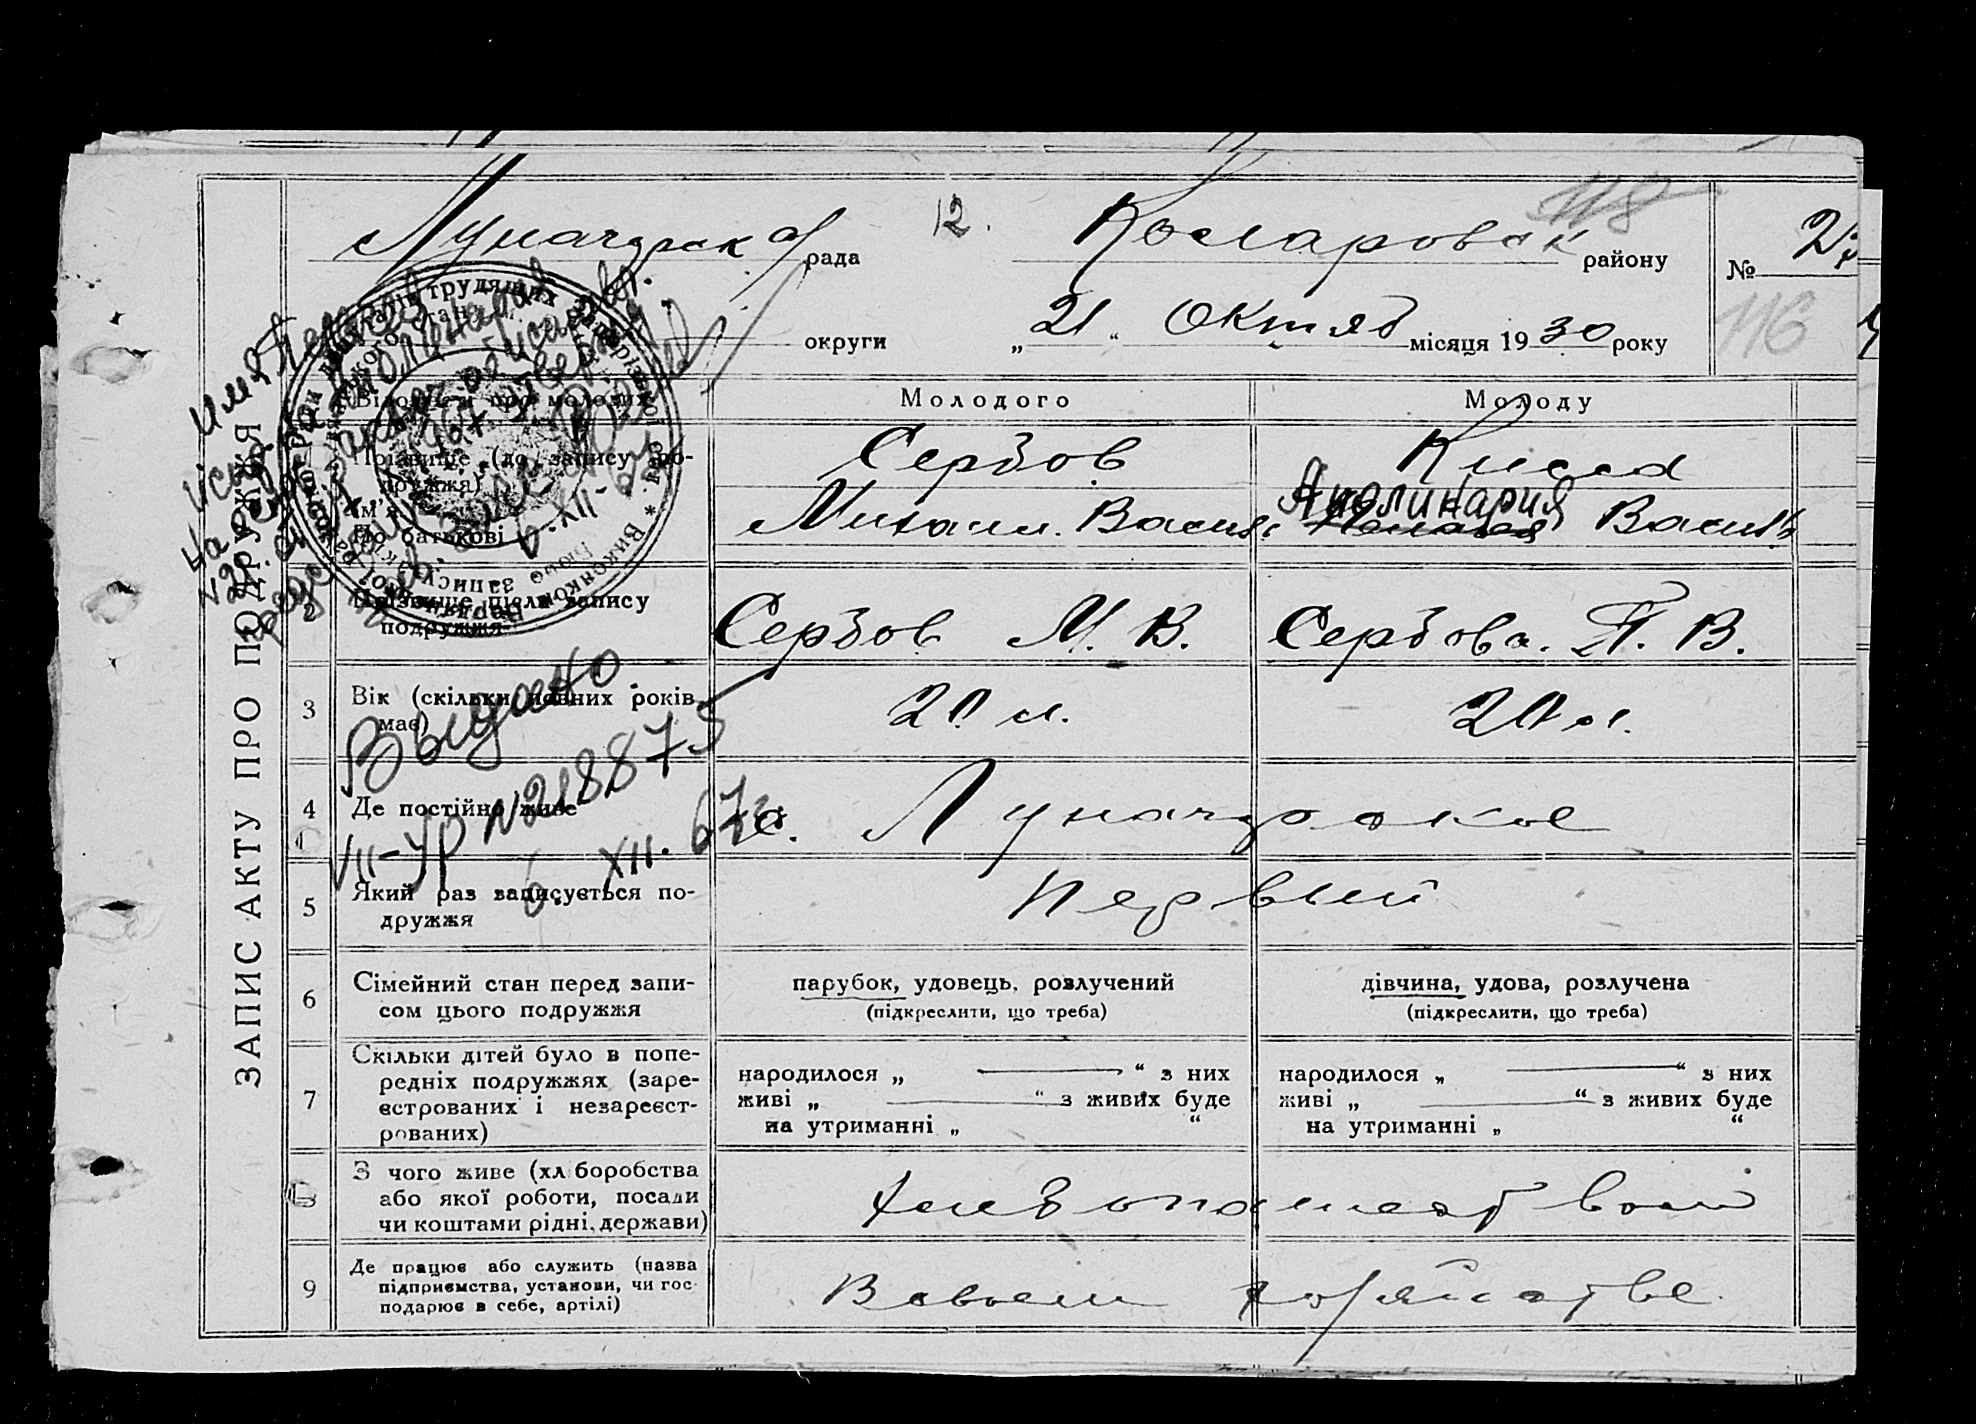 12.
118
Луначарска рада
Коларовск району
№ 23
округи „21“ Октяб місяця 1930 року
116
ЗАПИС АКТУ ПРО ПОДРУЖЖЯ
Відомости про молодих
Молодого
Молоду
Прізвище (до запису по-
дружжя)
Ім'я
По батькові
Сербов
Михаил. Василь
Кисса
Аполинария
Пелагея Василь
2
Прізвище після запису
подружжя
Сербов М. В.
Сербова. П. В.
3
Вік (скільки повних років
має)
20 л.
20 л.
4
Де постійно живе
с. Луначарское
5
Який раз записується по-
дружжя
Первый
6
Сімейний стан перед запи-
сом цього подружжя
парубок, удовець, розлучений
(підкреслити, що треба)
дівчина, удова, розлучена
(підкреслити, що треба)
7
Скільки дітей було в попе-
редніх подружжях (заре-
єстрованих і незареєст-
рованих)
народилося „ “ з них
живі „ “ з живих буде
на утриманні „ “
народилося „ “ з них
живі „ “ з живих буде
на утриманні „ “
З чого живе (хліборобства
або якої роботи, посади
чи коштами рідні, держави)
Хлебопашеством
9
Де працює або служить (назва
підприємства, установи, чи гос-
подарює в себе, артілі)
В своем хозяйстве
Выдано
VII-УР №218873
6 XII. 67г.
6.XII-67г